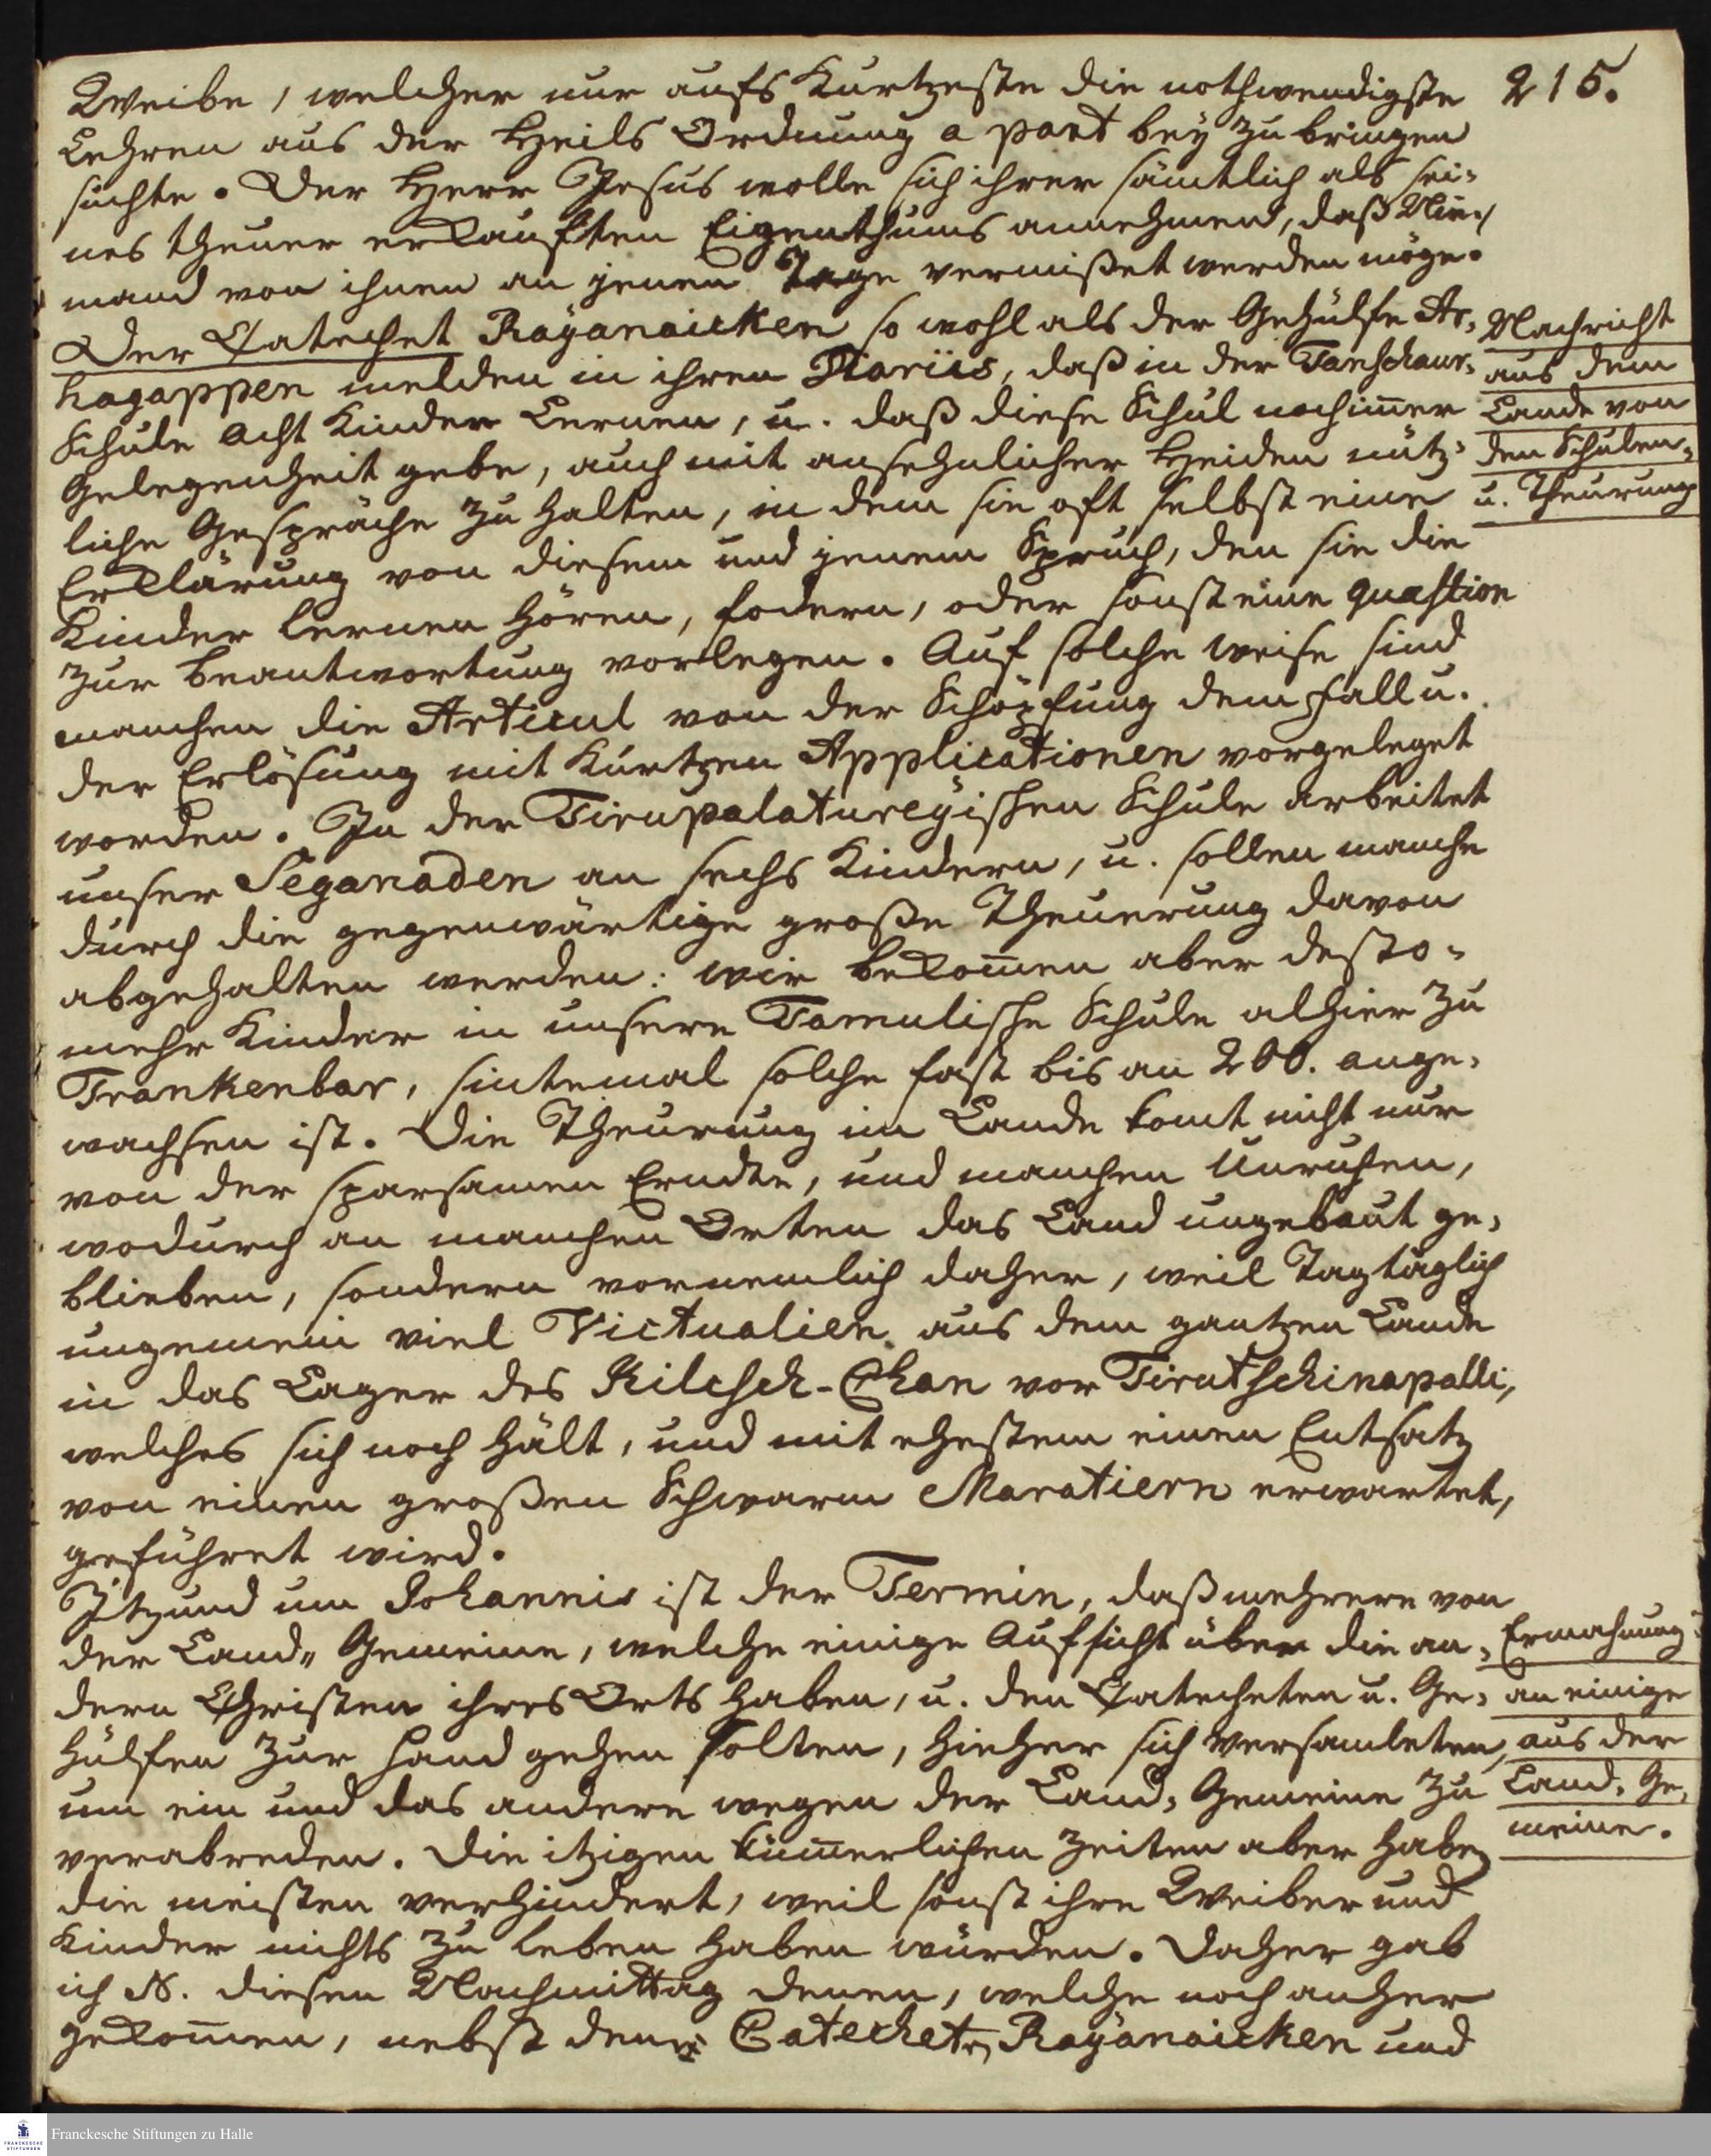 215.
Weibe, welcher nur aufs Kürtzeste die nothwendigste
Lehren aus der Heils Ordnung a part bey zu bringen
suchte. Der Herr Jesus wolle sich ihrer sämtlich als sei-
nes theuer erkauften Eigenthums annehmen, daß Nie-
mand von ihnen an jenem Tage vermißet werden möge.
Der Catechet Rayanaicken so wohl als der Gehülfe Ar-
hagappen melden in ihren Diariis, daß in der Tanschaur-
Schule acht Kinder Lernen, u. daß diese Schul noch im̄er
Gelegenheit gebe, auch mit ansehnlicher Heiden nütz-
liche Gespräche zu halten, in dem sie oft selbst eine
Erklärung von diesem und jenem Spruch, den sie die
Kinder lernen hören, fodern, oder sonst eine quaestion
zur beantwortung vorlegen. Auf solche weise sind
manchen die Articul von der Schöpfung dem fall u.
der Erlösung mit Kurtzen Applicationen vorgeleget
worden. In der Tirupalatureyischen Schule arbeitet
unser Seganaden an sechs Kindern, u. sollen manche
durch die gegenwärtige große Theuerung davon
abgehalten werden: wir bekom̄en aber desto-
mehr Kinder in unsere Tamulische Schule alhier zu
Trankenbar, sintemal solche fast bis an 200. ange-
wachsen ist. Die Theurung im Lande komt nicht nur
von der sparsamen Erndte, und manchen Unruhen,
wodurch an manchen Orten das Land ungebaut ge-
blieben, sondern vornemlich daher, weil Tagtäglich
ungemein viel Victualien aus dem gantzen Lande
in das Lager des Kilesch-Chan vor Tirutschinapalli,
welches sich noch hält, und mit ehestem einen Entsatz
von einem großen Schwarm Maratiern erwartet,
geführet wird.
Itzund um Johannis ist der Termin, daß mehrere von
der Land„ Gemeine, welche einige Aufsicht über die an-
dern Christen ihres Orts haben, u. den Catecheten u. Ge-
hülfen zur hand gehen solten, hieher sich versamleten,
um ein und das andere wegen der Land- Gemeine zu
verabreden. Die itzigen küm̄erlichen Zeiten aber haben
die meisten verhindert, weil sonst ihre Weiber und
Kinder nichts zu leben haben würden. Daher gab
ich N. diesen Nachmittag denen, welche noch anher
gekom̄en, nebst dem Catechet Rayanaicken und
Nachricht
aus dem
Lande von
den Schulen-
u. Theurung
Ermahnung
an einige
aus der
Land- Ge-
meine.
Franckesche Stiftungen zu Halle